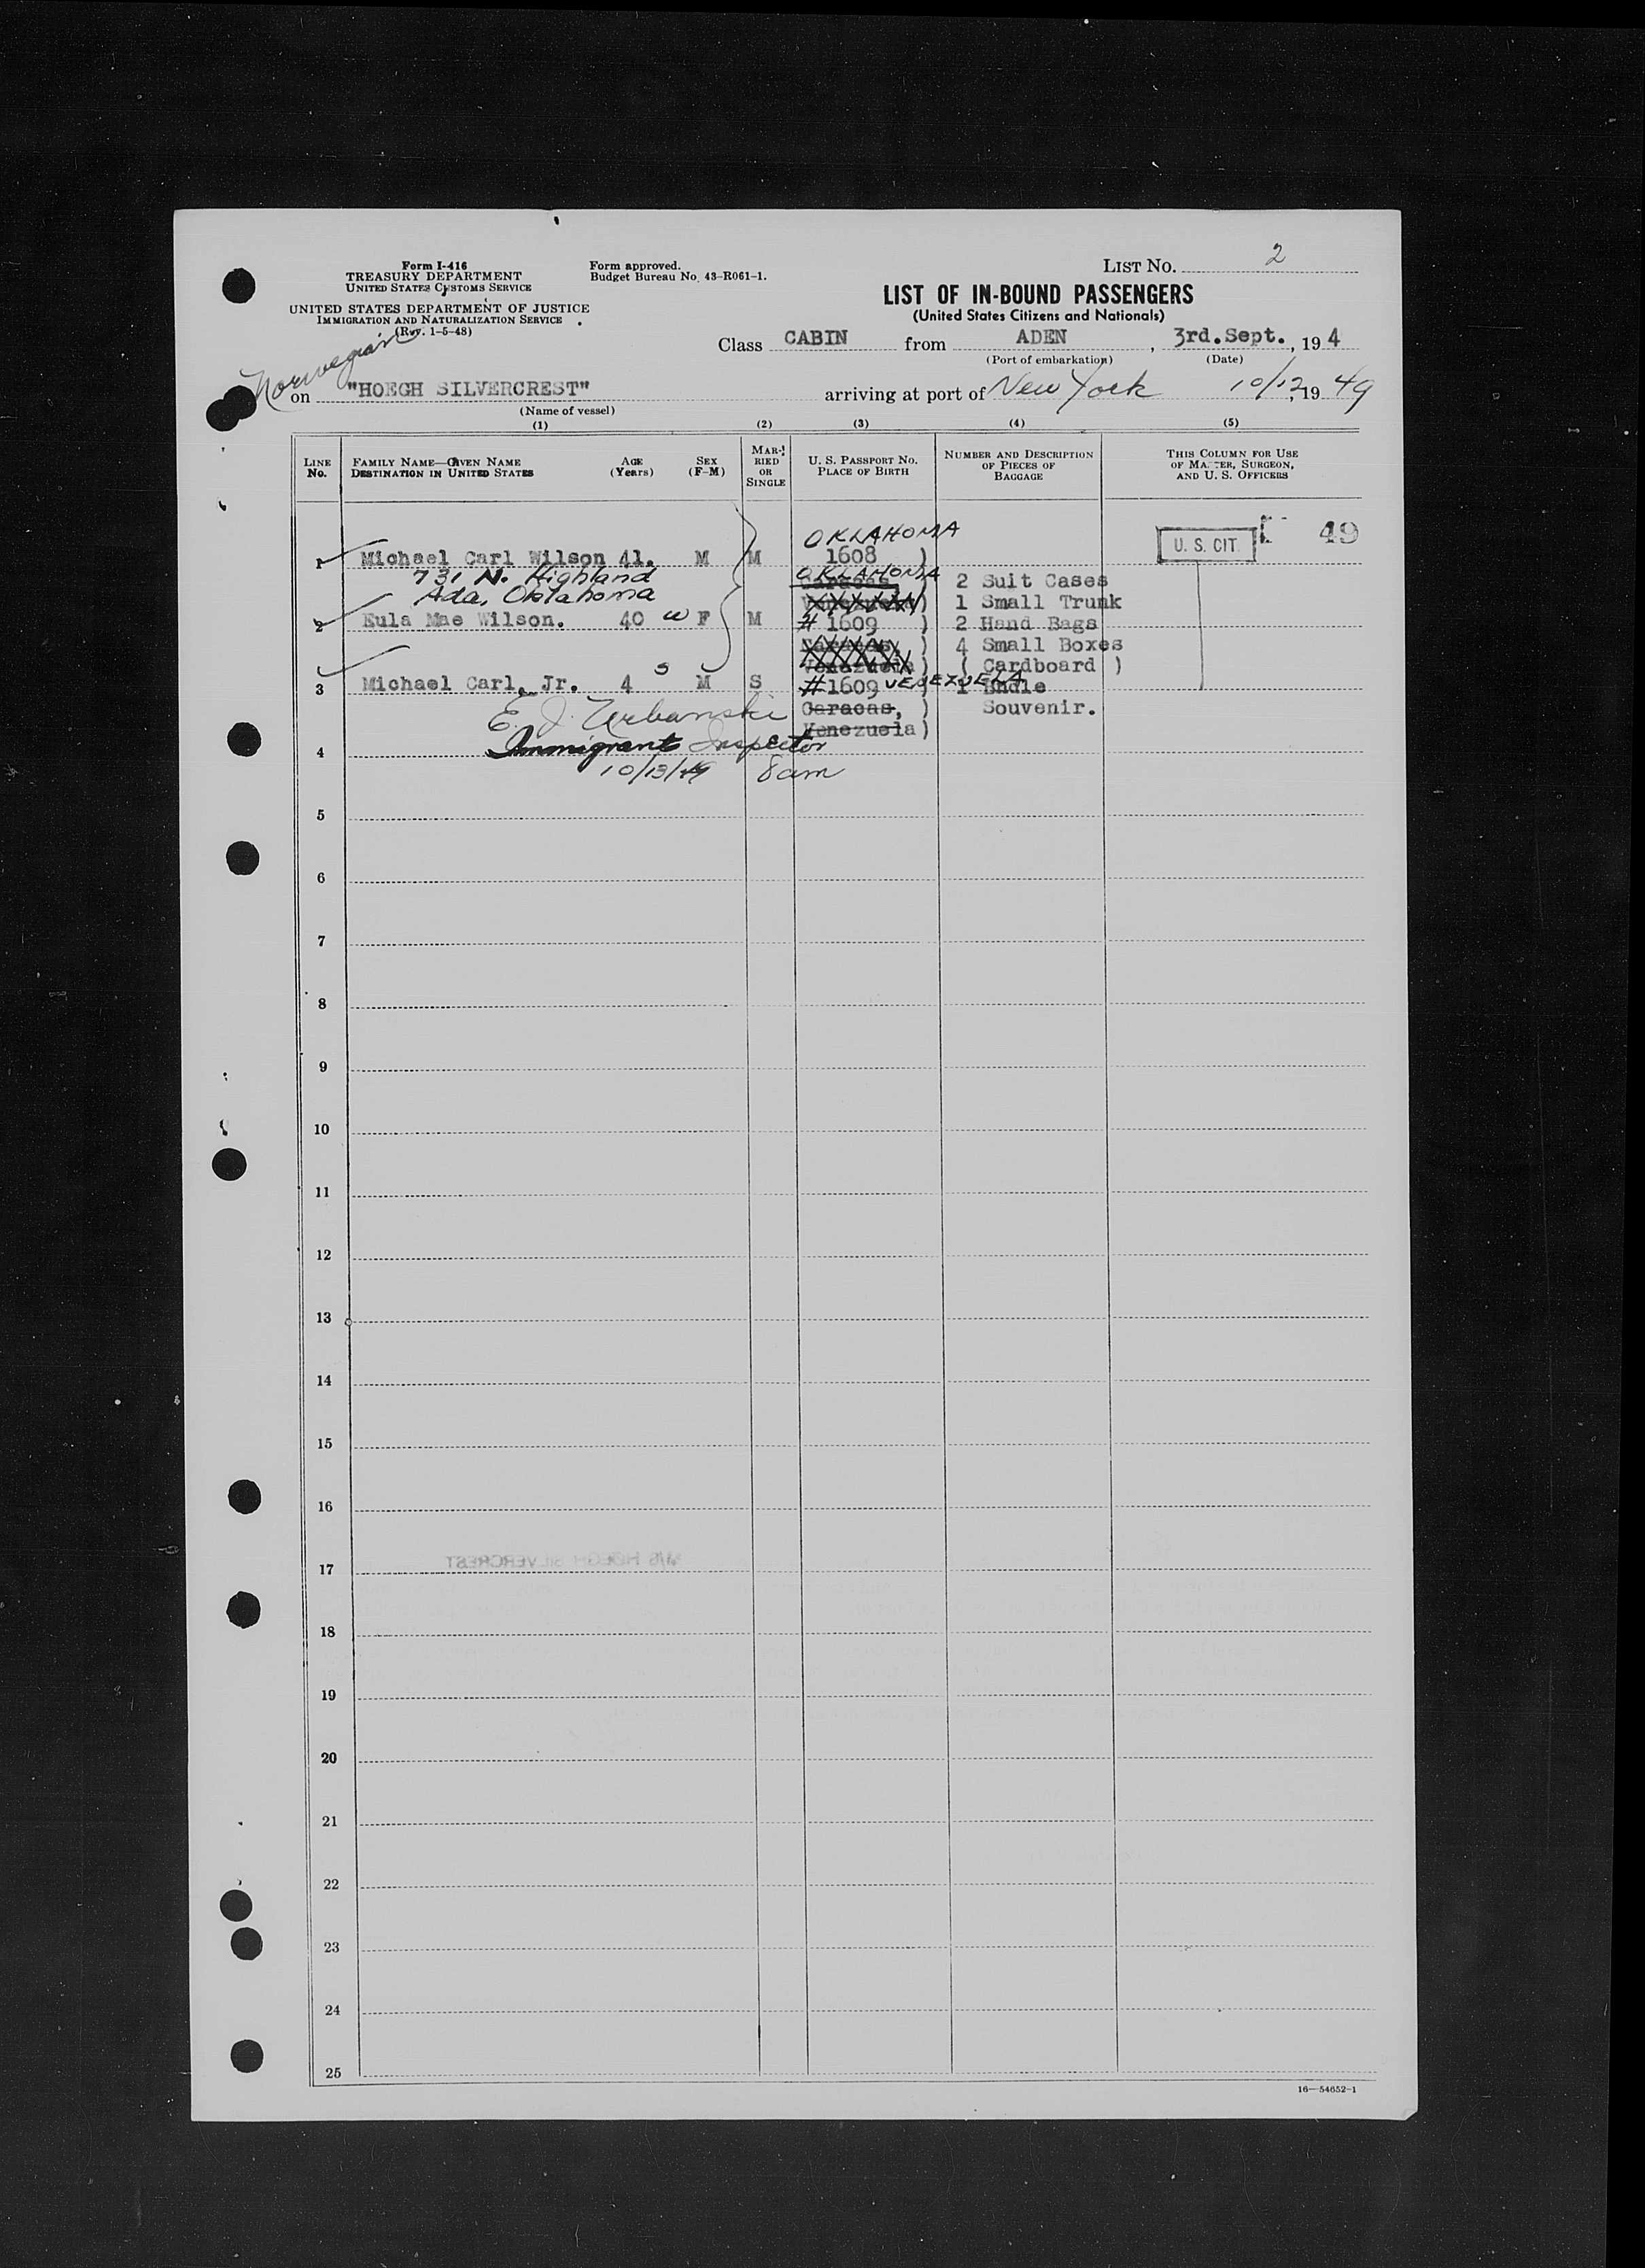 Form I-416
TREASURY DEPARTMENT
UNITED STATES CUSTOMS SERVICE
UNITED STATES DEPARTMENT OF JUSTICE
IMMIGRATION AND NATURALIZATION SERVICE
(Rev. 1-5-48)
Form approved.
Budget Bureau No. 43-R061-1.
LIST No. 2
LIST OF IN-BOUND PASSENGERS
(United States Citizens and Nationals)
Class CABIN from ADEN, 3rd.Sept., 194
(Port of embarkation) (Date)
Norwegian
on "HOEGH SILVERCREST" arriving at port of New York 10/12, 1949
(Name of vessel)
(1) (2) (3) (4) (5)
LINE No.
FAMILY NAME—GIVEN NAME
DESTINATION IN UNITED STATES
AGE (Years)
SEX (F-M)
MARRIED OR SINGLE
U. S. PASSPORT No.
PLACE OF BIRTH
NUMBER AND DESCRIPTION OF PIECES OF BAGGAGE
THIS COLUMN FOR USE OF MASTER, SURGEON, AND U. S. OFFICERS
OKLAHOMA
1 Michael Carl Wilson 41. M M 1608 ) U. S. CIT. 49
731 N. Highland OKLAHOMA 2 Suit Cases
Ada, Oklahoma Venezuela) 1 Small Trunk
2 Eula Mae Wilson. 40 w F M # 1609 ) 2 Hand Bags
Caracas, ) 4 Small Boxes
Venezuela) ( Cardboard )
3 Michael Carl, Jr. 4 s M S #1609 VENEZUELA ) 1 Bndle
E. J. Urbanski Caracas, ) Souvenir.
Immigrant Inspector Venezuela)
4
10/13/49 8am
5
6
7
8
9
10
11
12
13
14
15
16
M/S HOEGH SILVERCREST
17
18
19
20
21
22
23
24
25
16—54652-1